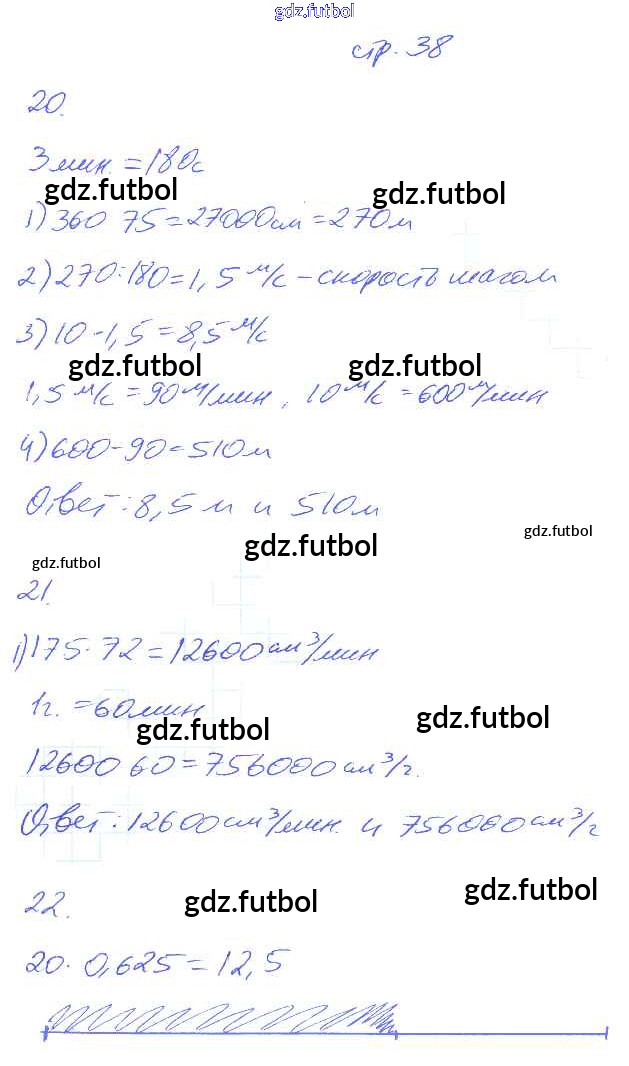 gdz.futbol
стр. 38
20.
3 мин. = 180с
gdz.futbol gdz.futbol
1) 360 75 = 27000см = 270м
2) 270:180 = 1,5 м/с - скорость шагом
3) 10-1,5 = 8,5 м/с
gdz.futbol gdz.futbol
1,5 м/с = 90 м/мин, 10 м/с = 600 м/мин
4) 600-90 = 510м
Ответ: 8,5 м и 510м
gdz.futbol gdz.futbol
gdz.futbol
21.
1) 175·72 = 12600 см³/мин
1ч. = 60мин
gdz.futbol gdz.futbol
12600 60 = 756000 см³/ч.
Ответ: 12600 см³/мин. и 756000 см³/ч
22.
gdz.futbol gdz.futbol
20·0,625 = 12,5